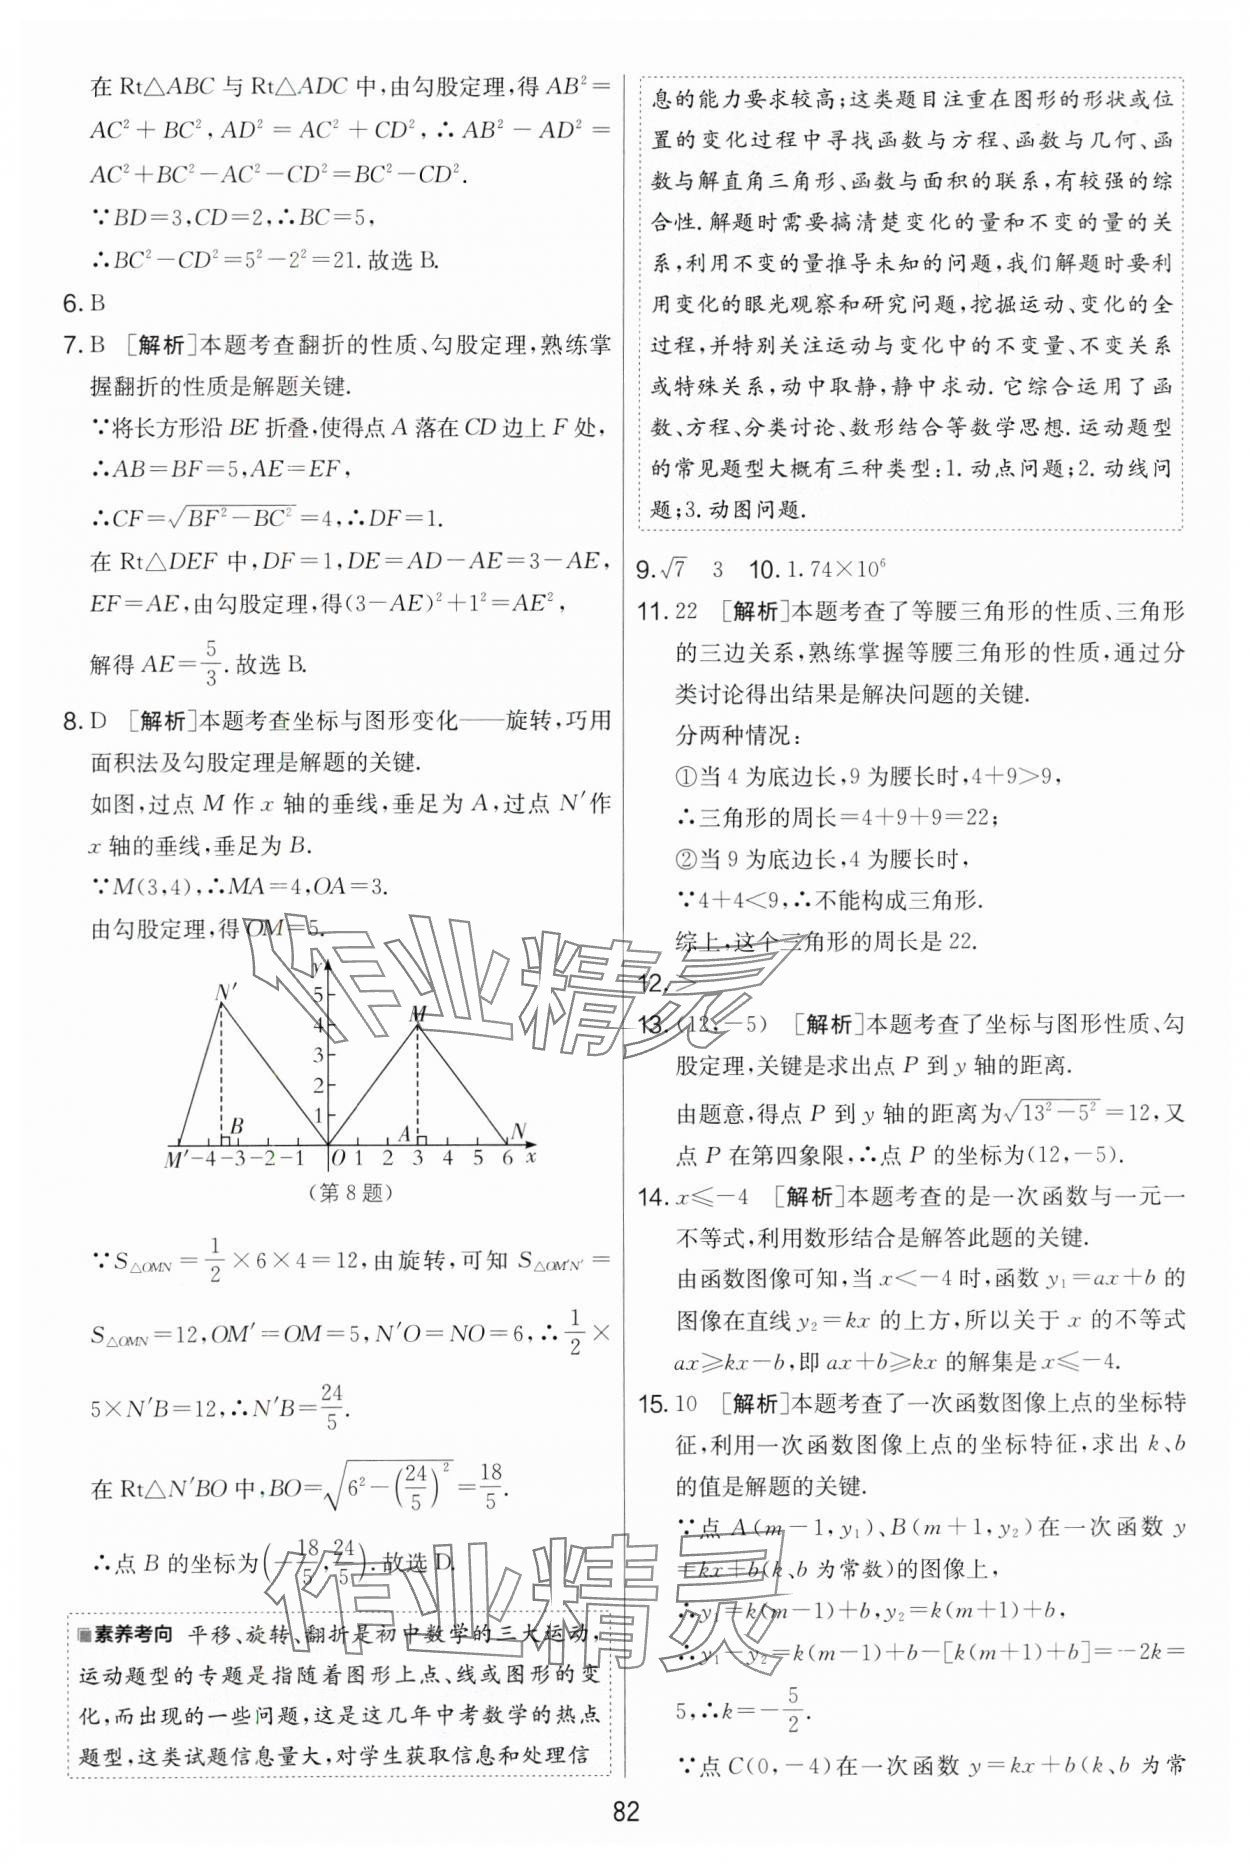 在 Rt△ABC 与 Rt△ADC 中,由勾股定理,得 AB²=
AC²+BC²,AD²=AC²+CD²,∴AB²-AD²=
AC²+BC²-AC²-CD²=BC²-CD².
∵BD=3,CD=2,∴BC=5,
∴BC²-CD²=5²-2²=21.故选 B.
6. B
7. B [解析]本题考查翻折的性质、勾股定理,熟练掌
握翻折的性质是解题关键.
∵将长方形沿 BE 折叠,使得点 A 落在 CD 边上 F 处,
∴AB=BF=5,AE=EF,
∴CF=√(BF²-BC²)=4,∴DF=1.
在 Rt△DEF 中,DF=1,DE=AD-AE=3-AE,
EF=AE,由勾股定理,得(3-AE)²+1²=AE²,
解得 AE=5/3.故选 B.
8. D [解析]本题考查坐标与图形变化——旋转,巧用
面积法及勾股定理是解题的关键.
如图,过点 M 作 x 轴的垂线,垂足为 A,过点 N′作
x 轴的垂线,垂足为 B.
∵M(3,4),∴MA=4,OA=3.
由勾股定理,得 OM=5.
y
N′ 5
4 M
3
2
1
B A N
M′ -4 -3 -2 -1 O 1 2 3 4 5 6 x
(第 8 题)
∵S△OMN=1/2×6×4=12,由旋转,可知 S△OM′N′=
S△OMN=12,OM′=OM=5,N′O=NO=6,∴1/2×
5×N′B=12,∴N′B=24/5.
在 Rt△N′BO 中,BO=√(6²-(24/5)²)=18/5.
∴点 B 的坐标为(-18/5,24/5).故选 D.
素养考向 平移、旋转、翻折是初中数学的三大运动,
运动题型的专题是指随着图形上点、线或图形的变
化,而出现的一些问题,这是这几年中考数学的热点
题型,这类试题信息量大,对学生获取信息和处理信
息的能力要求较高;这类题目注重在图形的形状或位
置的变化过程中寻找函数与方程、函数与几何、函
数与解直角三角形、函数与面积的联系,有较强的综
合性.解题时需要搞清楚变化的量和不变的量的关
系,利用不变的量推导未知的问题,我们解题时要利
用变化的眼光观察和研究问题,挖掘运动、变化的全
过程,并特别关注运动与变化中的不变量、不变关系
或特殊关系,动中取静,静中求动.它综合运用了函
数、方程、分类讨论、数形结合等数学思想.运动题型
的常见题型大概有三种类型:1.动点问题;2.动线问
题;3.动图问题.
9. √7 3 10. 1.74×10⁶
11. 22 [解析]本题考查了等腰三角形的性质、三角形
的三边关系,熟练掌握等腰三角形的性质,通过分
类讨论得出结果是解决问题的关键.
分两种情况:
①当 4 为底边长,9 为腰长时,4+9>9,
∴三角形的周长=4+9+9=22;
②当 9 为底边长,4 为腰长时,
∵4+4<9,∴不能构成三角形.
综上,这个三角形的周长是 22.
12. >
13. (12,-5) [解析]本题考查了坐标与图形性质、勾
股定理,关键是求出点 P 到 y 轴的距离.
由题意,得点 P 到 y 轴的距离为√(13²-5²)=12,又
点 P 在第四象限,∴点 P 的坐标为(12,-5).
14. x≤-4 [解析]本题考查的是一次函数与一元一
不等式,利用数形结合是解答此题的关键.
由函数图像可知,当 x<-4 时,函数 y₁=ax+b 的
图像在直线 y₂=kx 的上方,所以关于 x 的不等式
ax≥kx-b,即 ax+b≥kx 的解集是 x≤-4.
15. 10 [解析]本题考查了一次函数图像上点的坐标特
征,利用一次函数图像上点的坐标特征,求出 k、b
的值是解题的关键.
∵点 A(m-1,y₁)、B(m+1,y₂)在一次函数 y
=kx+b(k、b 为常数)的图像上,
∴y₁=k(m-1)+b,y₂=k(m+1)+b,
∴y₁-y₂=k(m-1)+b-[k(m+1)+b]=-2k=
5,∴k=-5/2.
∵点 C(0,-4)在一次函数 y=kx+b(k、b 为常
82
作业精灵
作业精灵